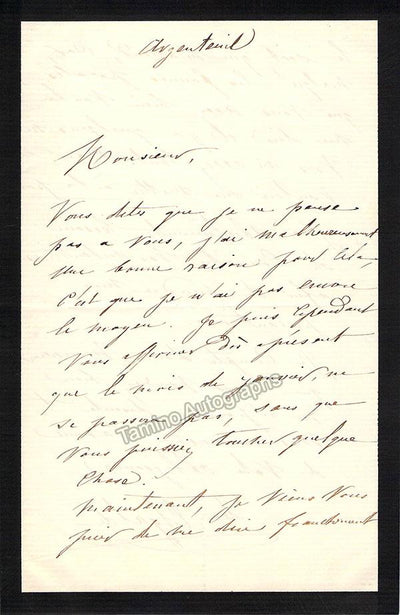 Argenteuil
Monsieur,
Vous dites que je ne pense
pas a Vous, j'ai malheureusement
Une bonne raison pour cela,
C'est que je n'ai pas encore
le moyen. Je puis cependant
Vous affirmer dès apresent
que le mois de Janvier, ne
se passera pas, sans que
Vous puissiez toucher quelque
Chose.
Maintenant, je Viens Vous
prier de me dire franchement
Tamino Autographs